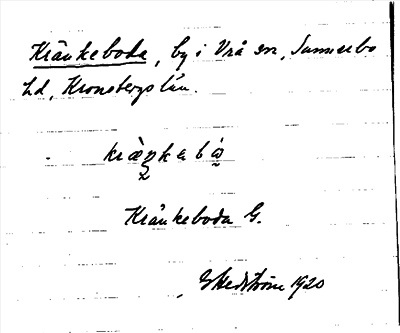 Kränkeboda, by i Vrå sn, Sunnerbo
hd, Kronobergs län.
kràŋkabó
Kränkeboda G.
E Hedström 1920